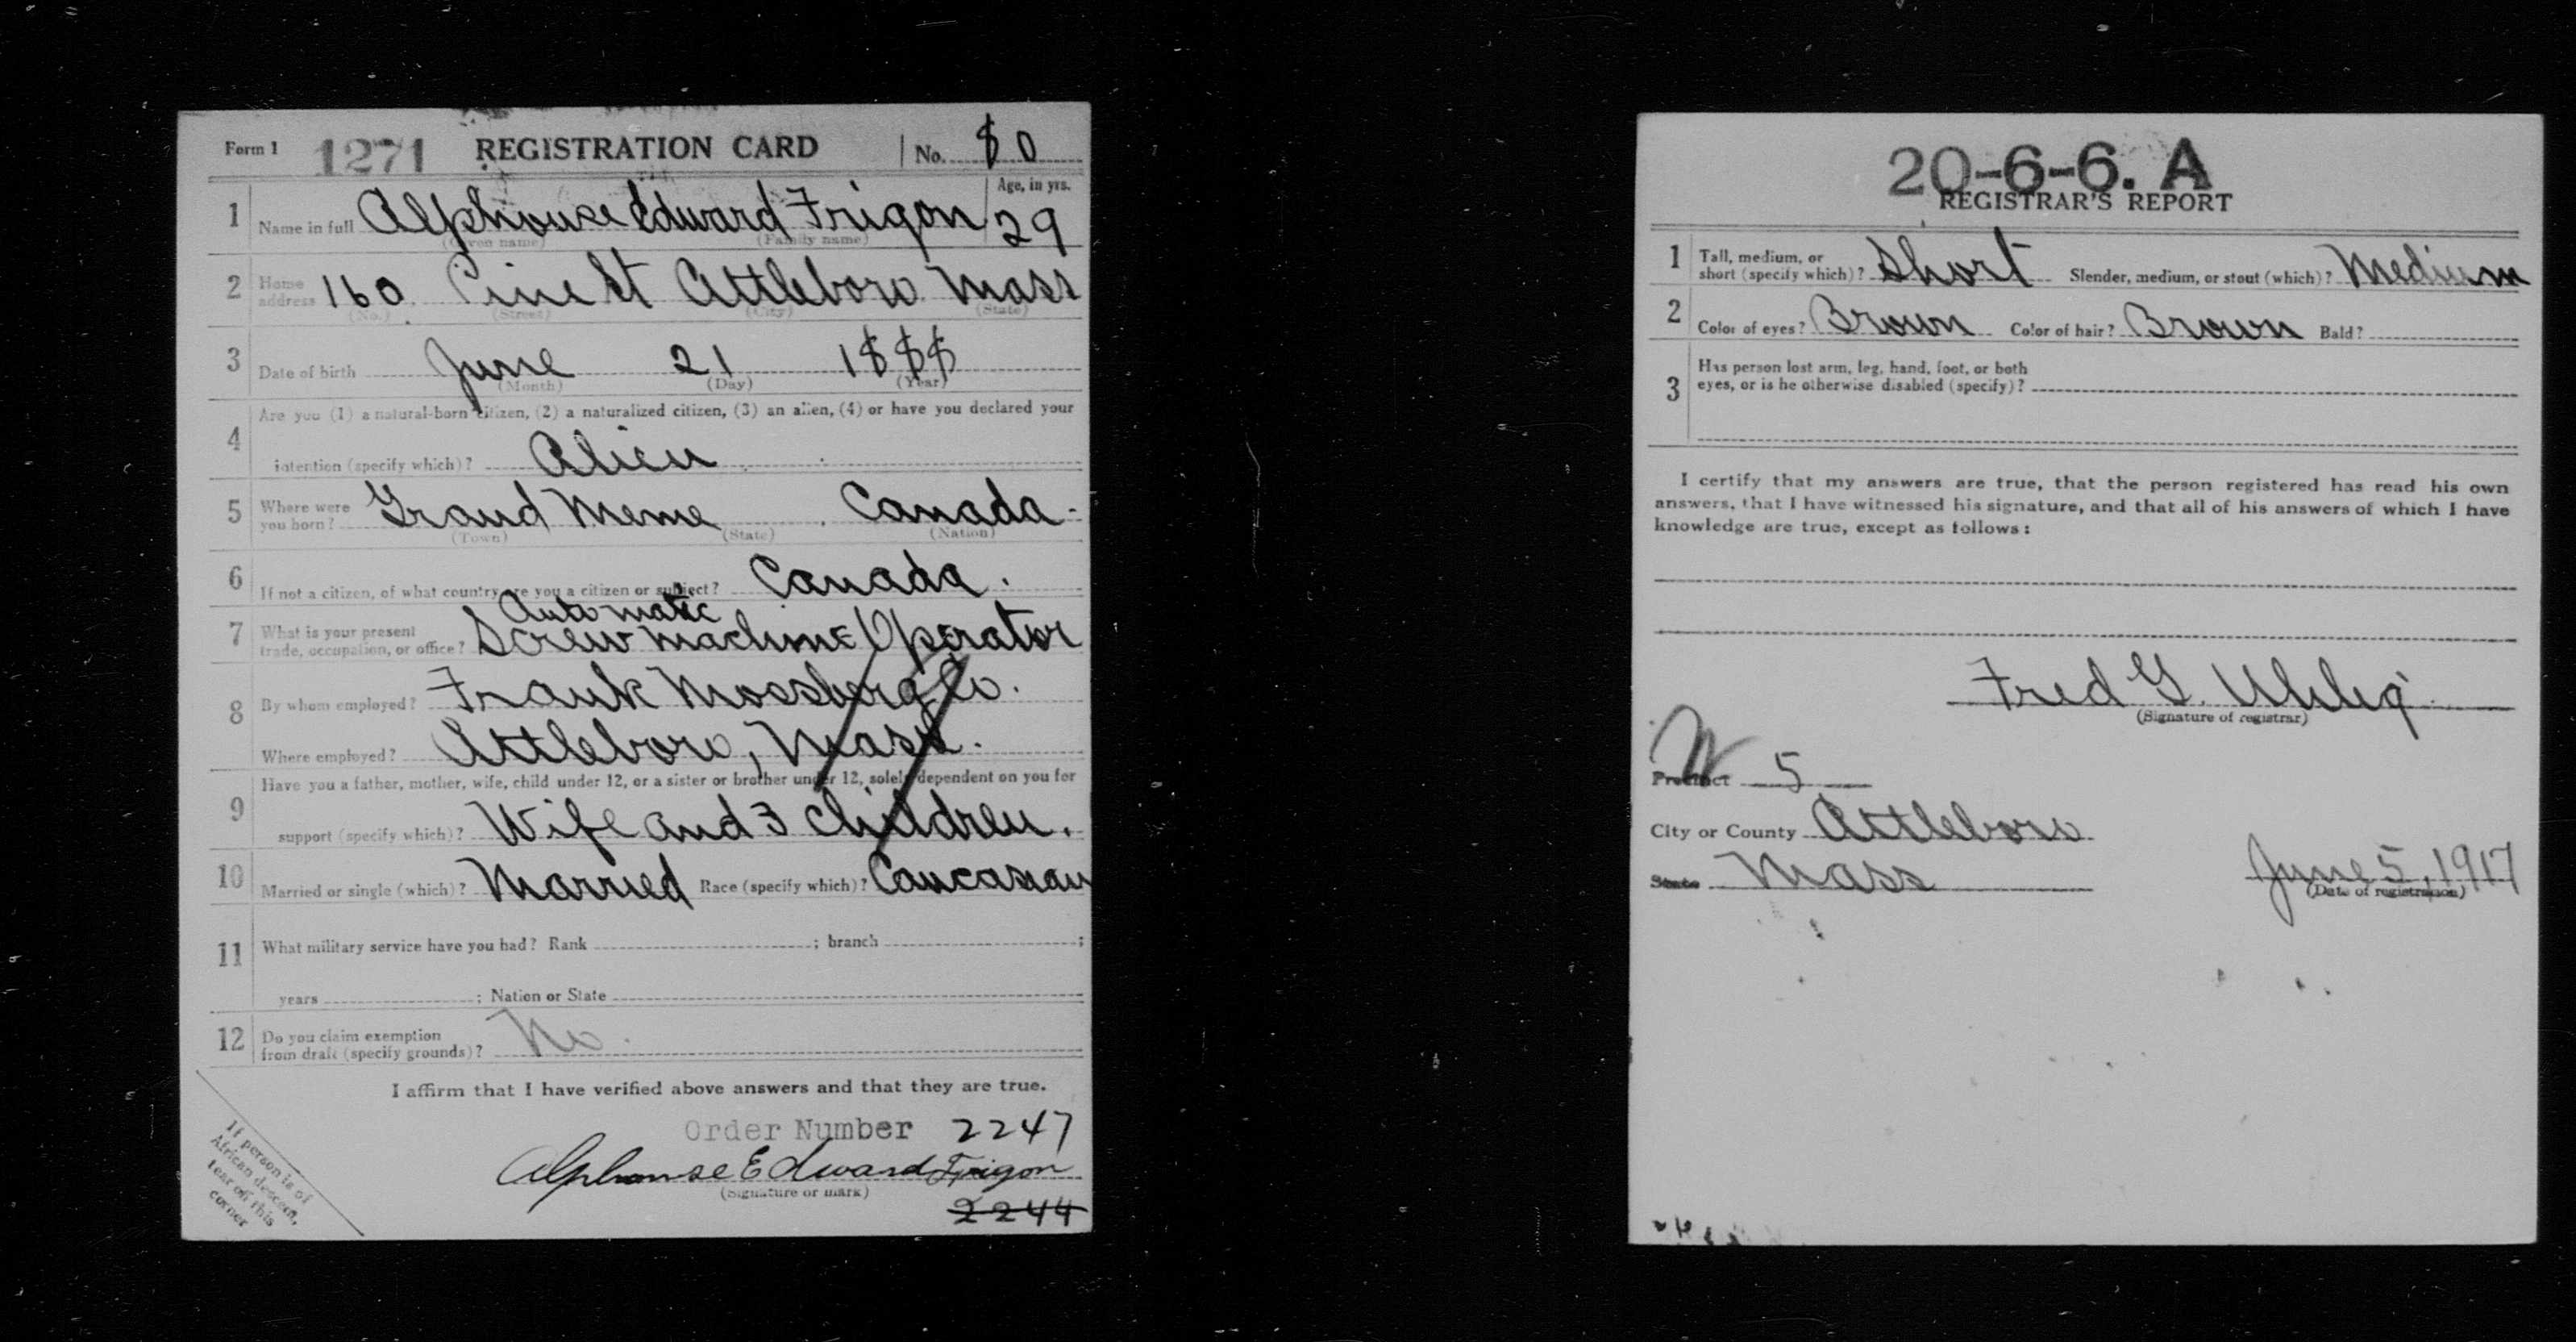 Form 1 1271 REGISTRATION CARD No. 80
1 Name in full Alphonse Edward Frigon Age, in yrs. 29
(Given name) (Family name)
2 Home address 160 Pine St Attleboro Mass
(No.) (Street) (City) (State)
3 Date of birth June 21 1888
(Month) (Day) (Year)
Are you (1) a natural-born citizen, (2) a naturalized citizen, (3) an alien, (4) or have you declared your
4 intention (specify which)? Alien
5 Where were you born? Grand Meme Canada
(Town) (State) (Nation)
6 If not a citizen, of what country are you a citizen or subject? Canada.
Automatic
7 What is your present trade, occupation, or office? Screw machine Operator
8 By whom employed? Frank Mossberg Co.
Where employed? Attleboro, Mass.
Have you a father, mother, wife, child under 12, or a sister or brother under 12, solely dependent on you for
9 support (specify which)? Wife and 3 children.
10 Married or single (which)? Married Race (specify which)? Caucasian
11 What military service have you had? Rank ; branch ;
years ; Nation or State
12 Do you claim exemption from draft (specify grounds)? No.
I affirm that I have verified above answers and that they are true.
Order Number 2247
Alphonse Edward Frigon
(Signature or mark)
2244
If person is of
African descent,
tear off this
corner
20-6-6. A
REGISTRAR'S REPORT
1 Tall, medium, or short (specify which)? Short Slender, medium, or stout (which)? Medium
2 Color of eyes? Brown Color of hair? Brown Bald?
3 Has person lost arm, leg, hand, foot, or both
eyes, or is he otherwise disabled (specify)?
I certify that my answers are true, that the person registered has read his own
answers, that I have witnessed his signature, and that all of his answers of which I have
knowledge are true, except as follows:
Fred G. Uhlig
(Signature of registrar)
W
Precinct 5
City or County Attleboro
State Mass June 5, 1917
(Date of registration)